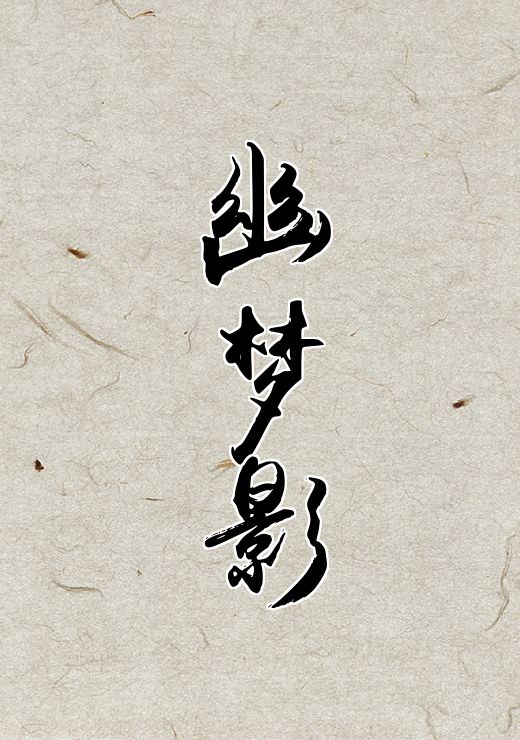 幽梦影